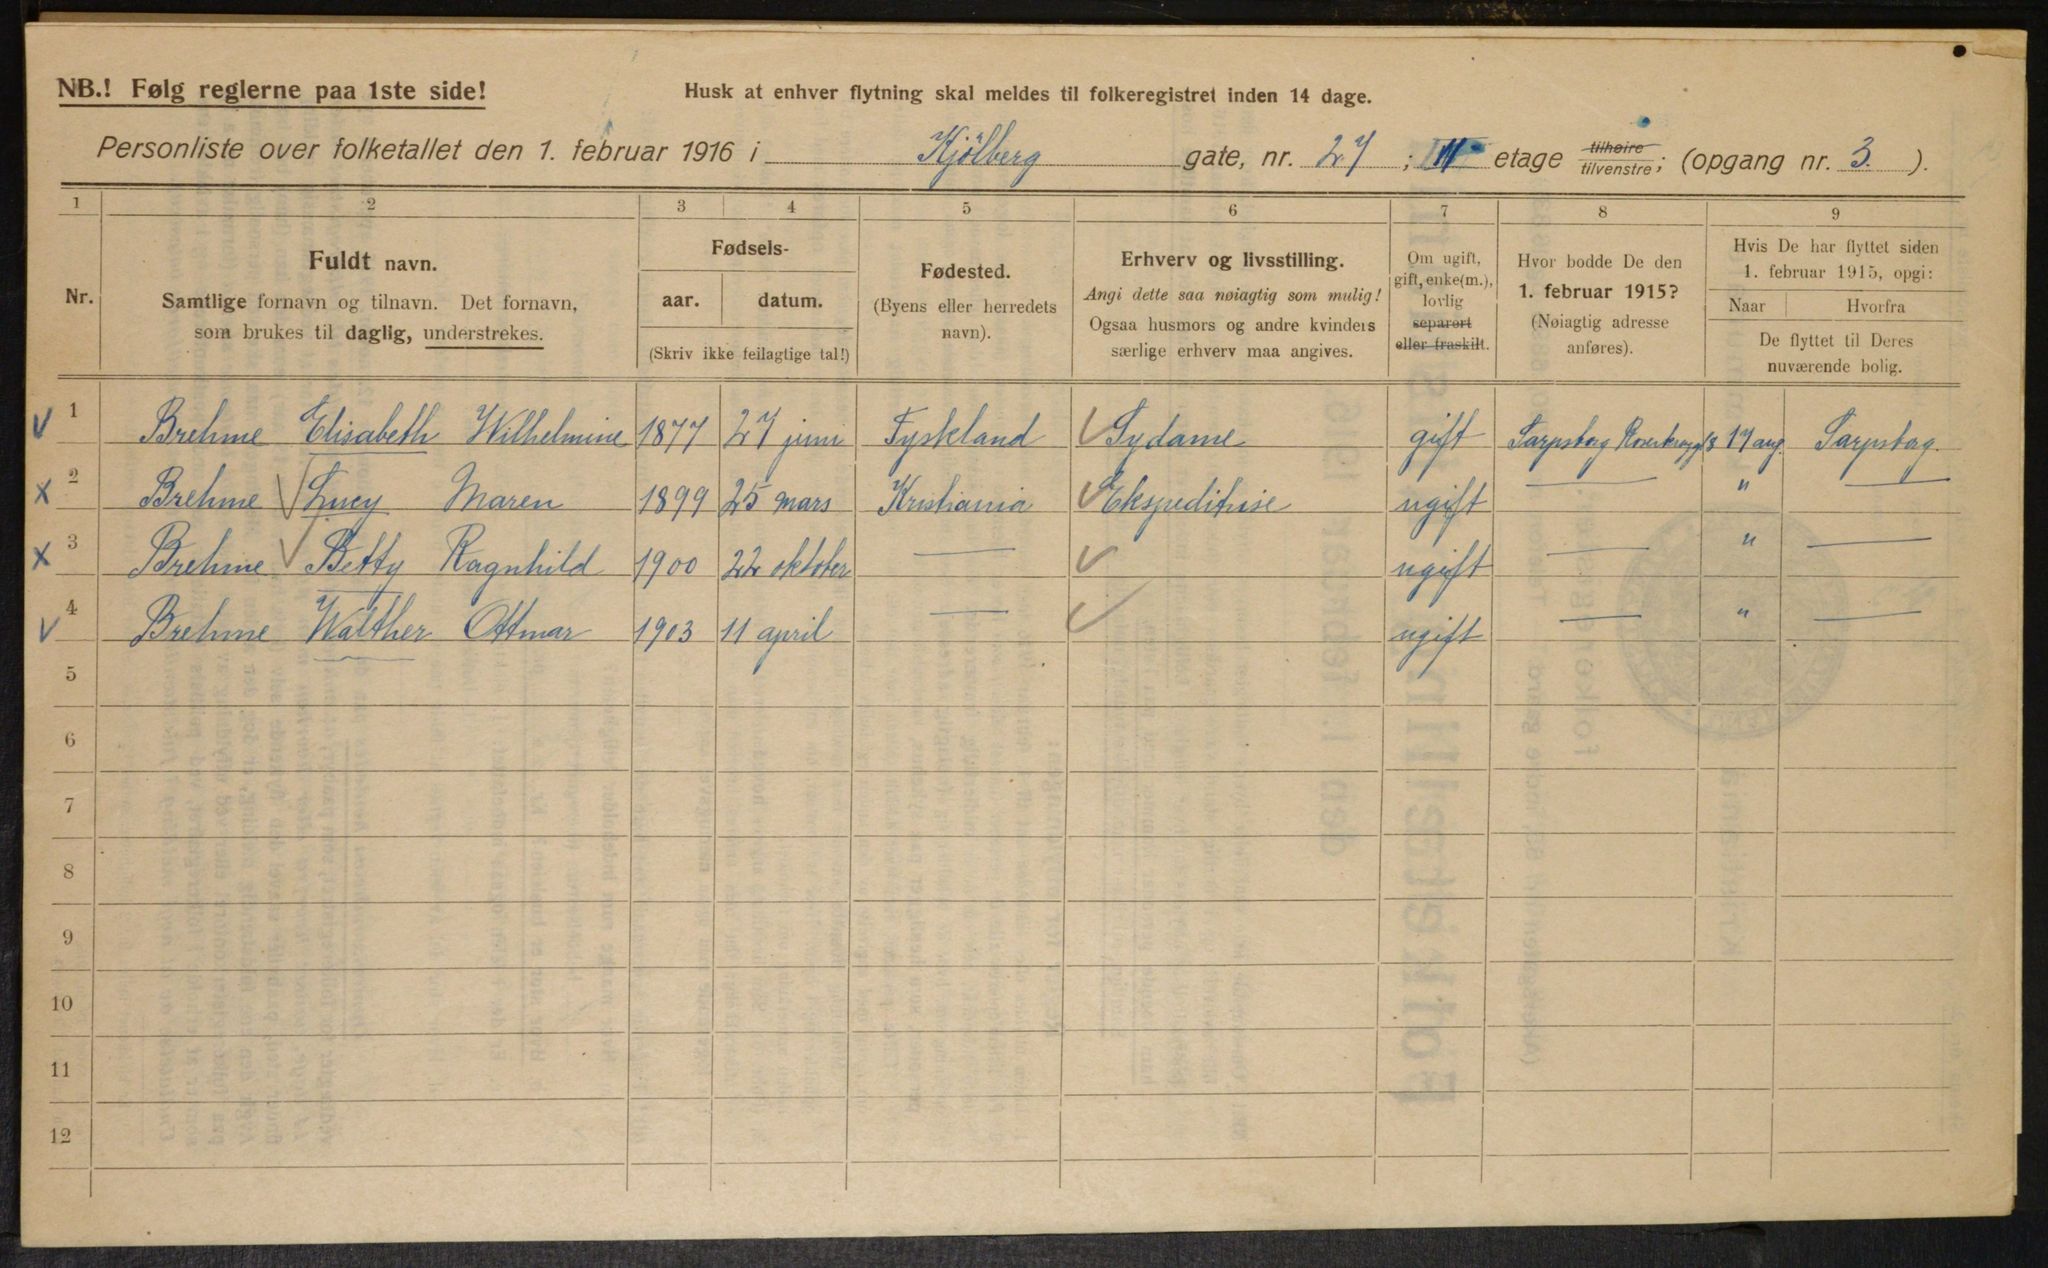 NB.! Følg reglerne paa 1ste side!
Husk at enhver flytning skal meldes til folkeregistret inden 14 dage.
Personliste over folketallet den 1. februar 1916 i Kjölberg gate, nr. 27; etage tilhøire tilvenstre; (opgang nr. 3.).
1 2 3 4 5 6 7 8 9
Nr.
Fuldt navn.
Samtlige fornavn og tilnavn. Det fornavn,
som brukes til daglig, understrekes.
Fødsels-
aar. datum.
(Skriv ikke feilagtige tal!)
Fødested.
(Byens eller herredets
navn).
Erhverv og livsstilling.
Angi dette saa nøiagtig som mulig!
Ogsaa husmors og andre kvinders
særlige erhverv maa angives.
Om ugift,
gift, enke(m.),
lovlig
separert
eller fraskilt.
Hvor bodde De den
1. februar 1915?
(Nøiagtig adresse
anføres).
Hvis De har flyttet siden
1. februar 1915, opgi:
Naar Hvorfra
De flyttet til Deres
nuværende bolig.
1 Brehme Elisabeth Wilhelmine 1877 27 juni Tyskland Sydame gift Sarpsborg 17 aug. Sarpsborg.
2 Brehme Lucy Maren 1899 25 mars Kristiania Ekspeditrise ugift — " —
3 Brehme Betty Ragnhild 1900 22 oktober — ugift — " —
4 Brehme Walther Ottmar 1903 11 april — ugift — " —
5
6
7
8
9
10
11
12